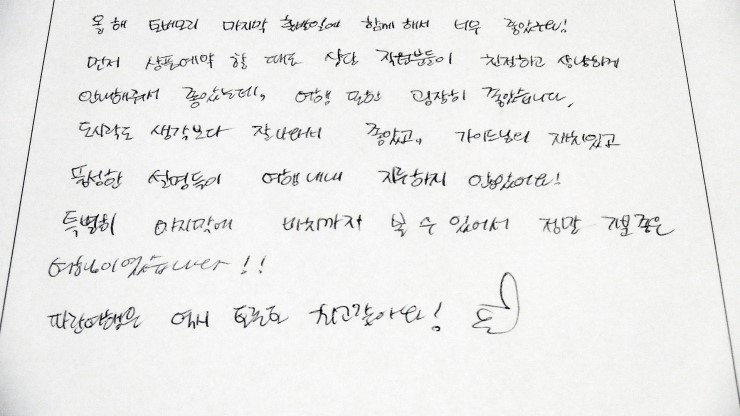 올해 토버모리 마지막 출발일에 함께 해서 너무 좋았어요!
먼저 상품예약 할 때도 상담 직원분들이 친절하고 상냥하게
안내해주셔서 좋았는데, 여행 또한 굉장히 좋았습니다.
도시락도 생각보다 잘나와서 좋았고, 가이드님의 재치있고
풍성한 설명들이 여행내내 지루하지 않았어요!
특별히 마지막에 비치까지 볼 수 있어서 정말 기분좋은
여행이었습니다!!
파란여행은 역시 토론토 최고같아요!